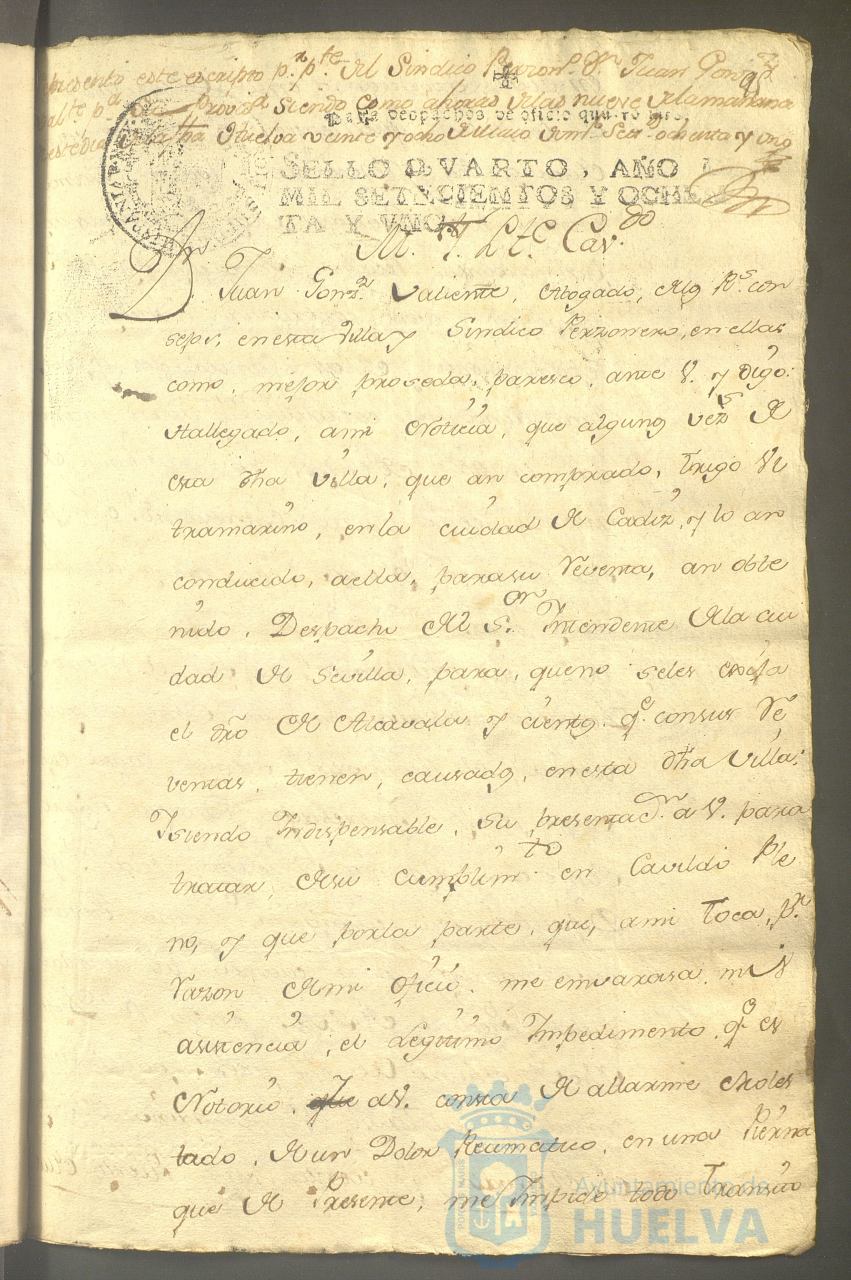 presento este escripto p.r p.te del Sindico Person.o D.n Juan Gonz.z
siendo como ahoras delas nueve delamañana
Huelva veinte y ocho de Mayo ochenta y uno
Para despachos de oficio quatro mrs.
SELLO QVARTO, AÑO
MIL SETECIENTOS Y OCHEN
TA Y VNO
HISPANIA
M. Y. Lt.e Cav.do
D.n Juan Gonz.z Valiente, Abogado, delos R.s con
sejos, en esta Villa y Sindico Perzonero, en ella
como, mejor proseda, paresco, ante V. y digo:
Hallegado, ami Noticia, que algunos vez.s de
esta dha Villa, que an comprado, trigo Ul
tramarino, en la ciudad de Cadiz, y lo an
conducido, aella, parasu Reventa, an obte
nido, Despacho del S.or Intendente dela ciu
dad de Sevilla, para, queno seles exija
el dro de Alcavala y cientos q.e consus Re
ventas, tienen, causado, en esta dha Villa;
Ysiendo Yndispensable, su presentac.n a V. para
tratar, desu cumplim.to en Cavildo Ple
no, y que porla parte, que, ami Toca, p.r
razon demi oficio, me envarasa, mi
asistencia, el Legitimo Impedimento, q.e es
Notorio, que aV. consta de allarme Moles
tado, de un Dolor Reumatico, en una Pierna
que de Presente, me Impide todo Transito
Ayuntamiento de
HUELVA